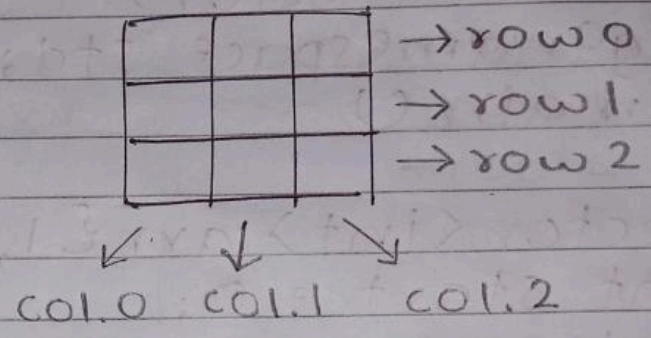 → row 0
→ row 1
→ row 2
col.0 col.1 col.2